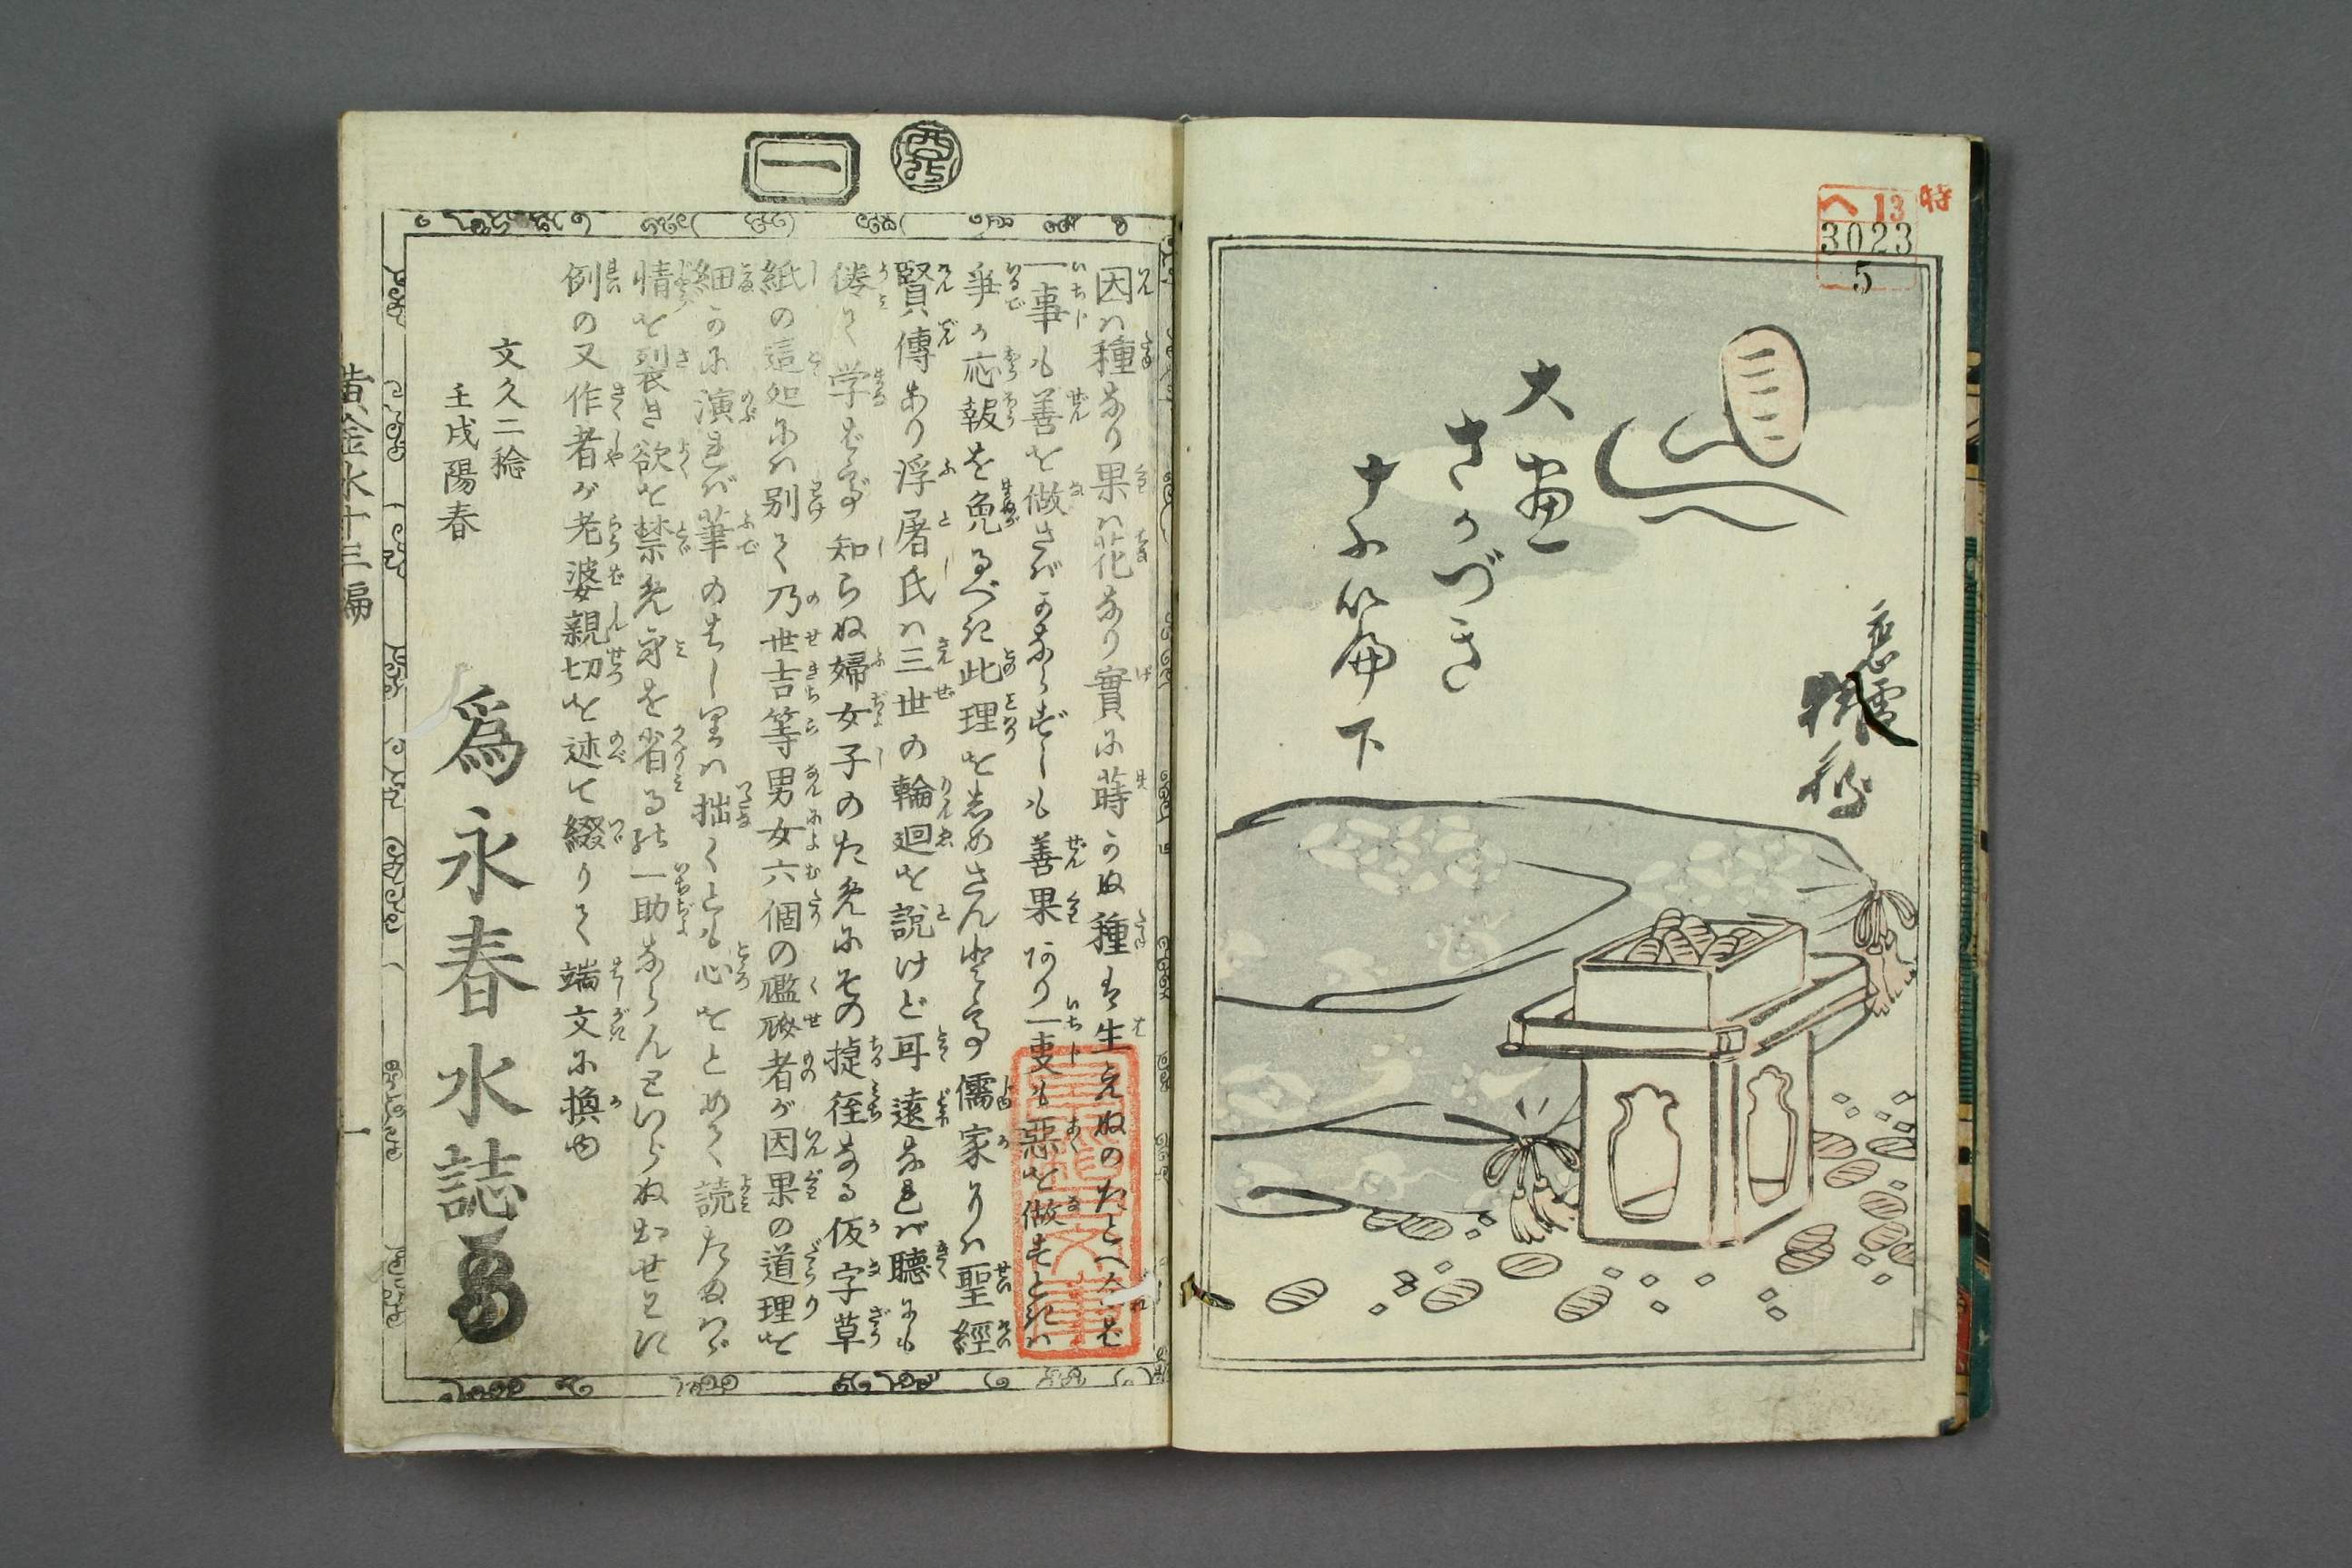 特
へ13
3023
5
大畫
さかづき
十三篇下
一
因ハ種なり果ハ花なり實に蒔かぬ種は生えぬのたとへなれば
一事も善を做さばかならずしも善果あり一事も惡を做すときハ
争か応報を免るべき此理をしめさんとて儒家にハ聖經
賢傳あり浮屠氏ハ三世の輪廻を説けど耳遠なれば聴にも
倦て学ばず知らぬ婦女子のためにその捷径なる仮字草
紙の這
如にハ別て乃世吉等男女六個の
者が因果の道理を
細かに演れば筆のはしりハ拙くとも心をとめて読たまはゞ
情を裂き欲を禁め身を省るの一助ならんといらぬおせヽを
例の又作者が老婆親切を述て綴りて端文に換ゆ
文久二稔
壬戌陽春
爲永春水誌
黄金水十三編
一